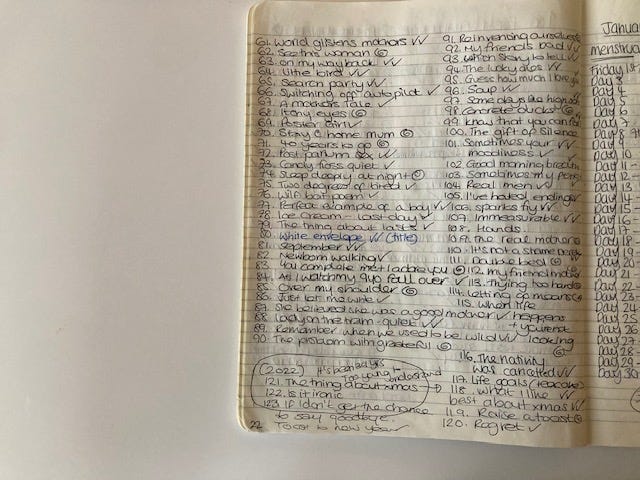 61. World glistens mothers ✓✓
62. See this woman ©
63. on my way back ✓✓
64. Little bird ✓✓
65. Search party ✓✓
66. Switching off auto pilot ✓
67. A mothers tale ✓
68. Itchy eyes ©
69. Poster girl ✓
70. Stay @ home mum ©
71. 40 years to go ©
72. Post partum sex ✓✓
73. Candy floss quiet ✓
74. Sleep deeply at night ©
75. Two degrees of tired ✓
76. Wifi bait poem ✓
77. Perfect example of a boy ✓✓
78. Ice cream - last day ✓
79. The thing about lasts ✓
80. White envelope ✓✓ (title)
81. September ✓✓
82. Newborn walking ✓
83. You complete me + I adore you ©
84. As I watch my 9yo fall over ✓
85. Over my shoulder ©
86. Just let me write ✓
87. She believed she was a good mother ✓
88. Lady on the tram - quiet ✓✓
89. Remember when we used to be wild ✓✓
90. The problem with grateful ©
(2022) It's been two yrs
Too young to understand
121. The thing about xmas →
122. Is it ironic
123. If I don't get the chance
to say goodbye
To cot to new you ✓
91. Reinventing ourselves
92. My friend's bad ✓✓
93. Which story to tell ✓✓
94. The lucky dips ✓✓
95. Guess how much I love you
96. Soup ✓✓
97. Some days like high
98. Concrete bucket ©
99. I know that you can
100. The gift of silence
101. Sometimes your ✓✓
moodiness ✓
102. Good morning
103. Sometimes my
104. Real men ✓
105. I've hated endings
106. Sparks fly ✓✓
107. Immeasurable ✓✓
108. Hands
109. The real mothers
110. It's not a shame
111. Double bed ©
112. My friend
113. Trying too hard ©
114. Letting go means ©
115. When life
happens
+ you're not
looking
©
116. The nativity
was cancelled ✓✓
117. Life goals
118. What I like ✓✓
best about xmas ✓✓
119. Raise a toast ©
120. Regret ✓
menstrua
Friday 1st
Day 3
Day 4
Day 5
Day 7
Day 8
Day 9
Day 10
Day 11
Day 12
Day 13
Day 14
Day 15
Day 16
Day 17
Day 18
Day 19
Day 20
Day 21
Day 22
Day 23
Day 24
Day 25
Day 26
Day 28
Day 30